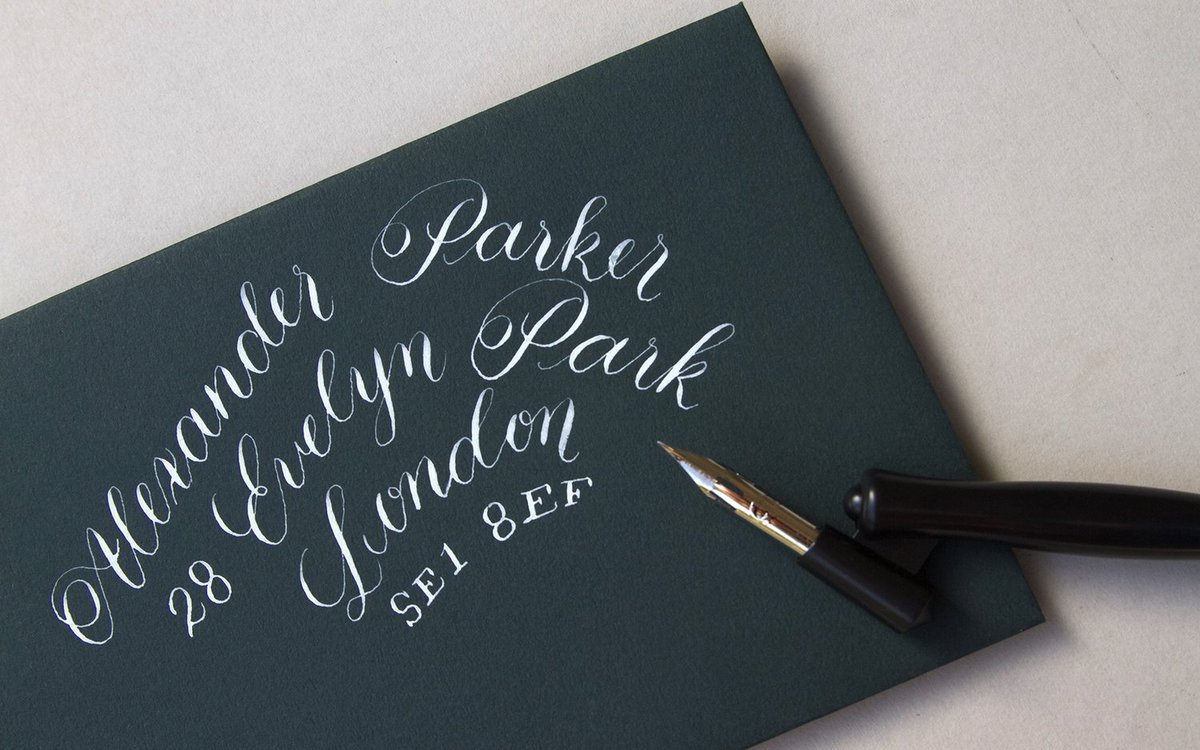 Alexander Parker
28 Evelyn Park
London
SE1 8EF